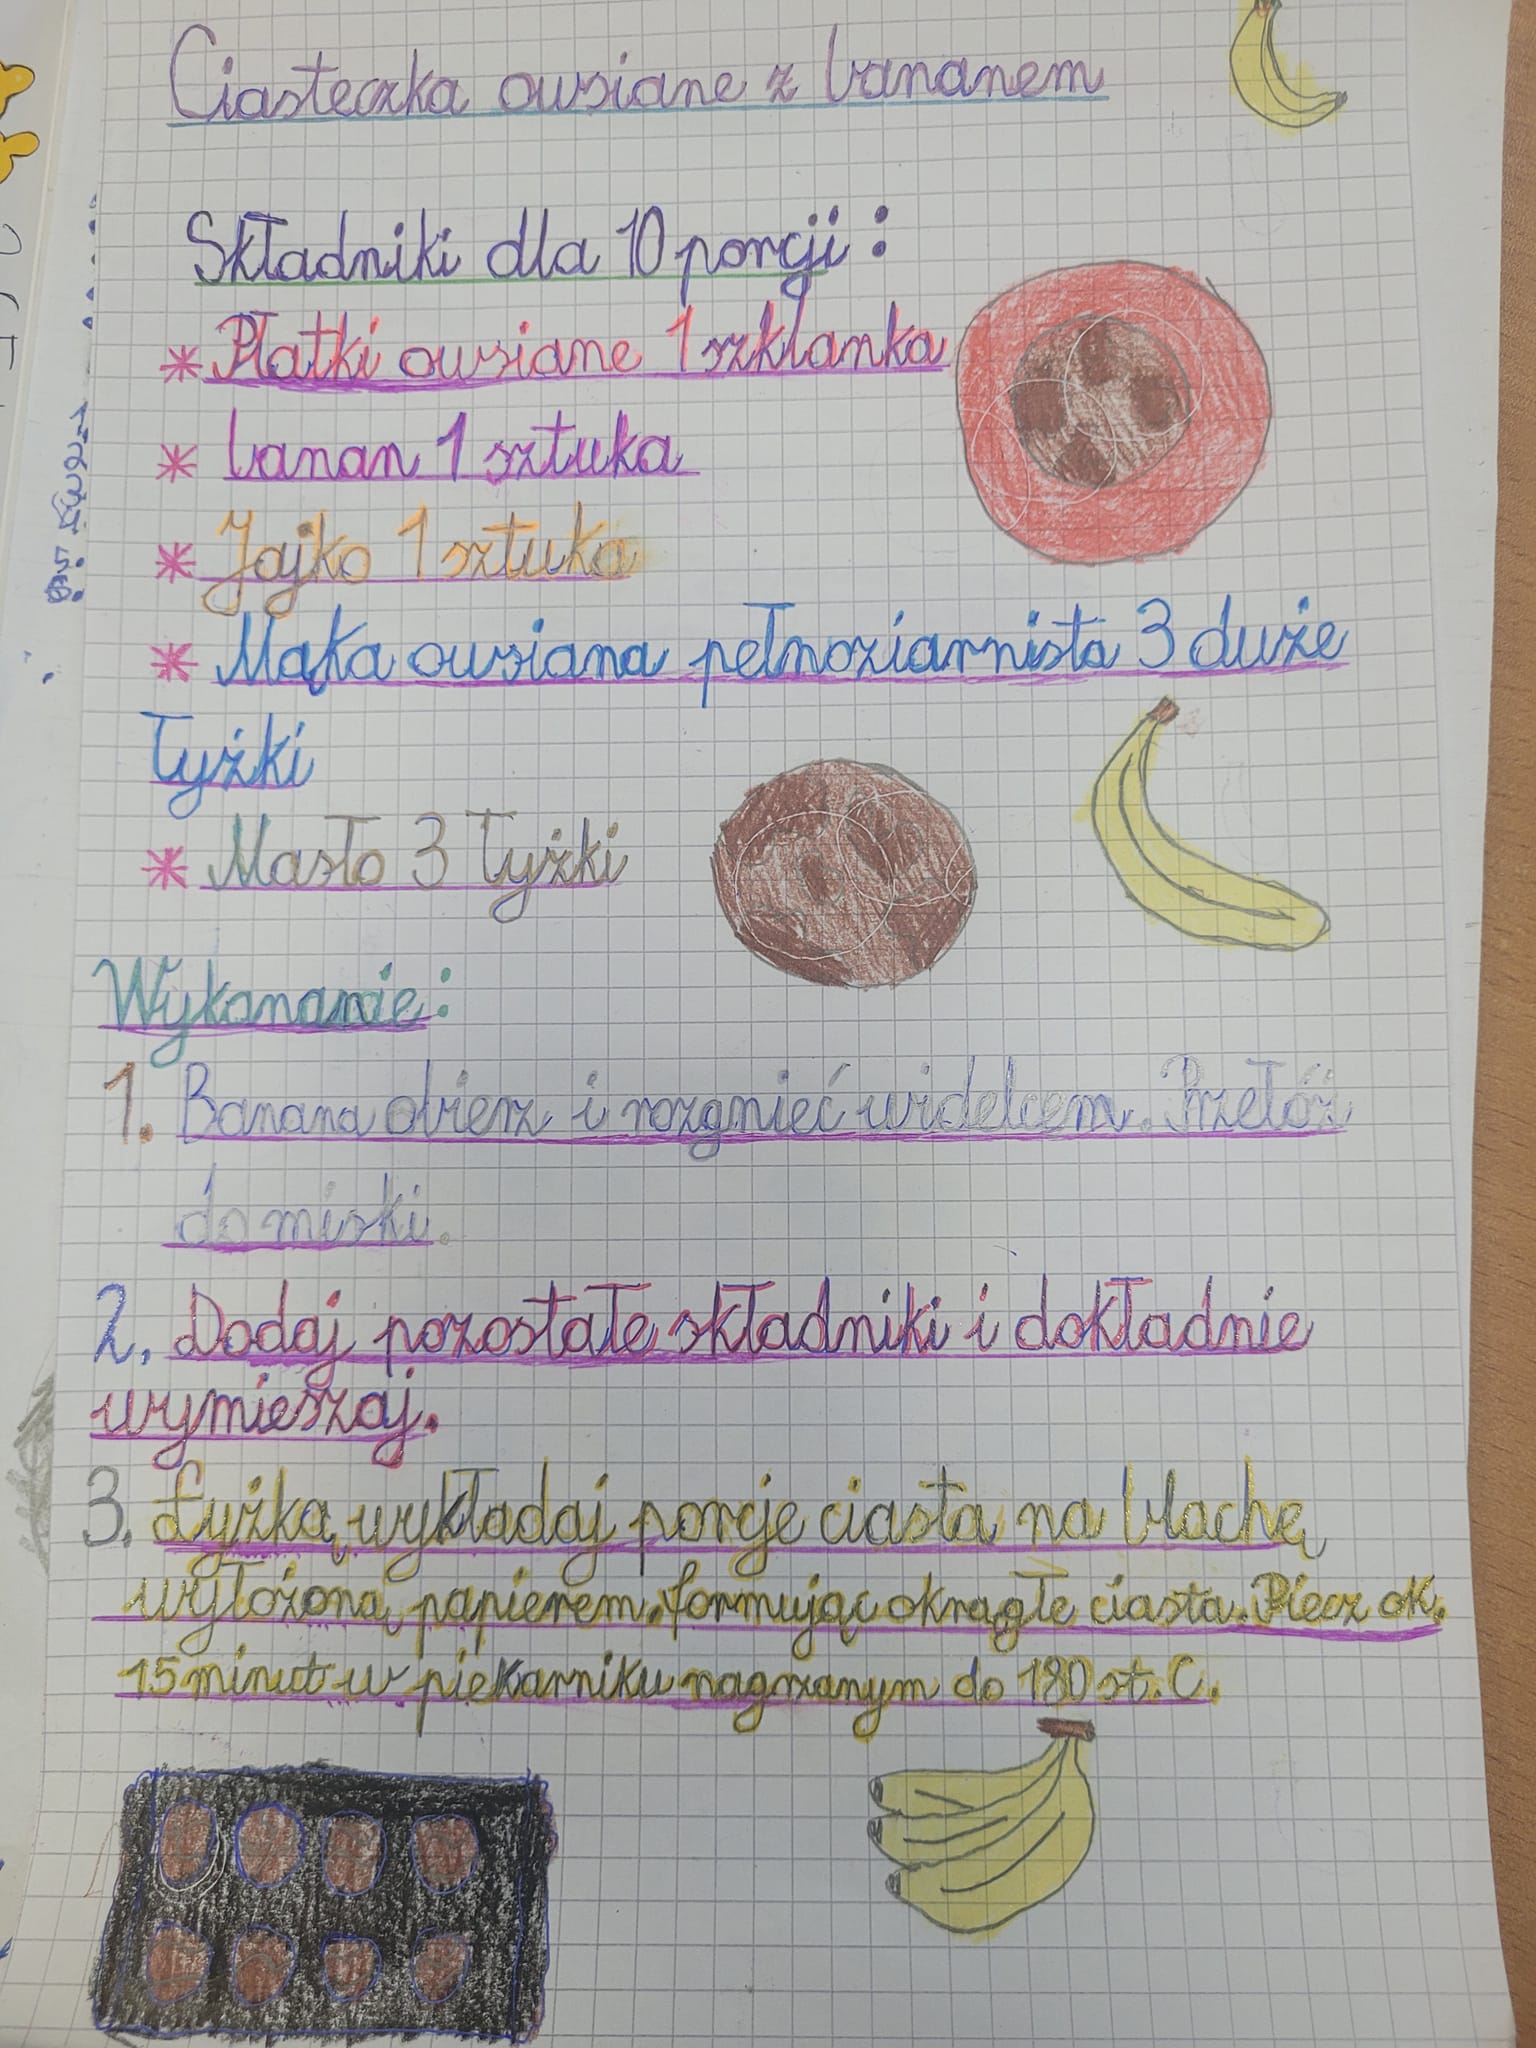 Ciasteczka owsiane z bananem
Składniki dla 10 porcji:
* Płatki owsiane 1 szklanka
* banan 1 sztuka
* Jajko 1 sztuka
* Mąka owsiana pełnoziarnista 3 duże
łyżki
* Masło 3 łyżki
Wykonanie:
1. Banana obierz i rozgnieć widelcem. Przełóż
do miski.
2. Dodaj pozostałe składniki i dokładnie
wymieszaj.
3. Łyżką wykładaj porcje ciasta na blachę
wyłożoną papierem. formując okrągłe ciasta. Piecz ok.
15 minut w piekarniku nagrzanym do 180 st. C.